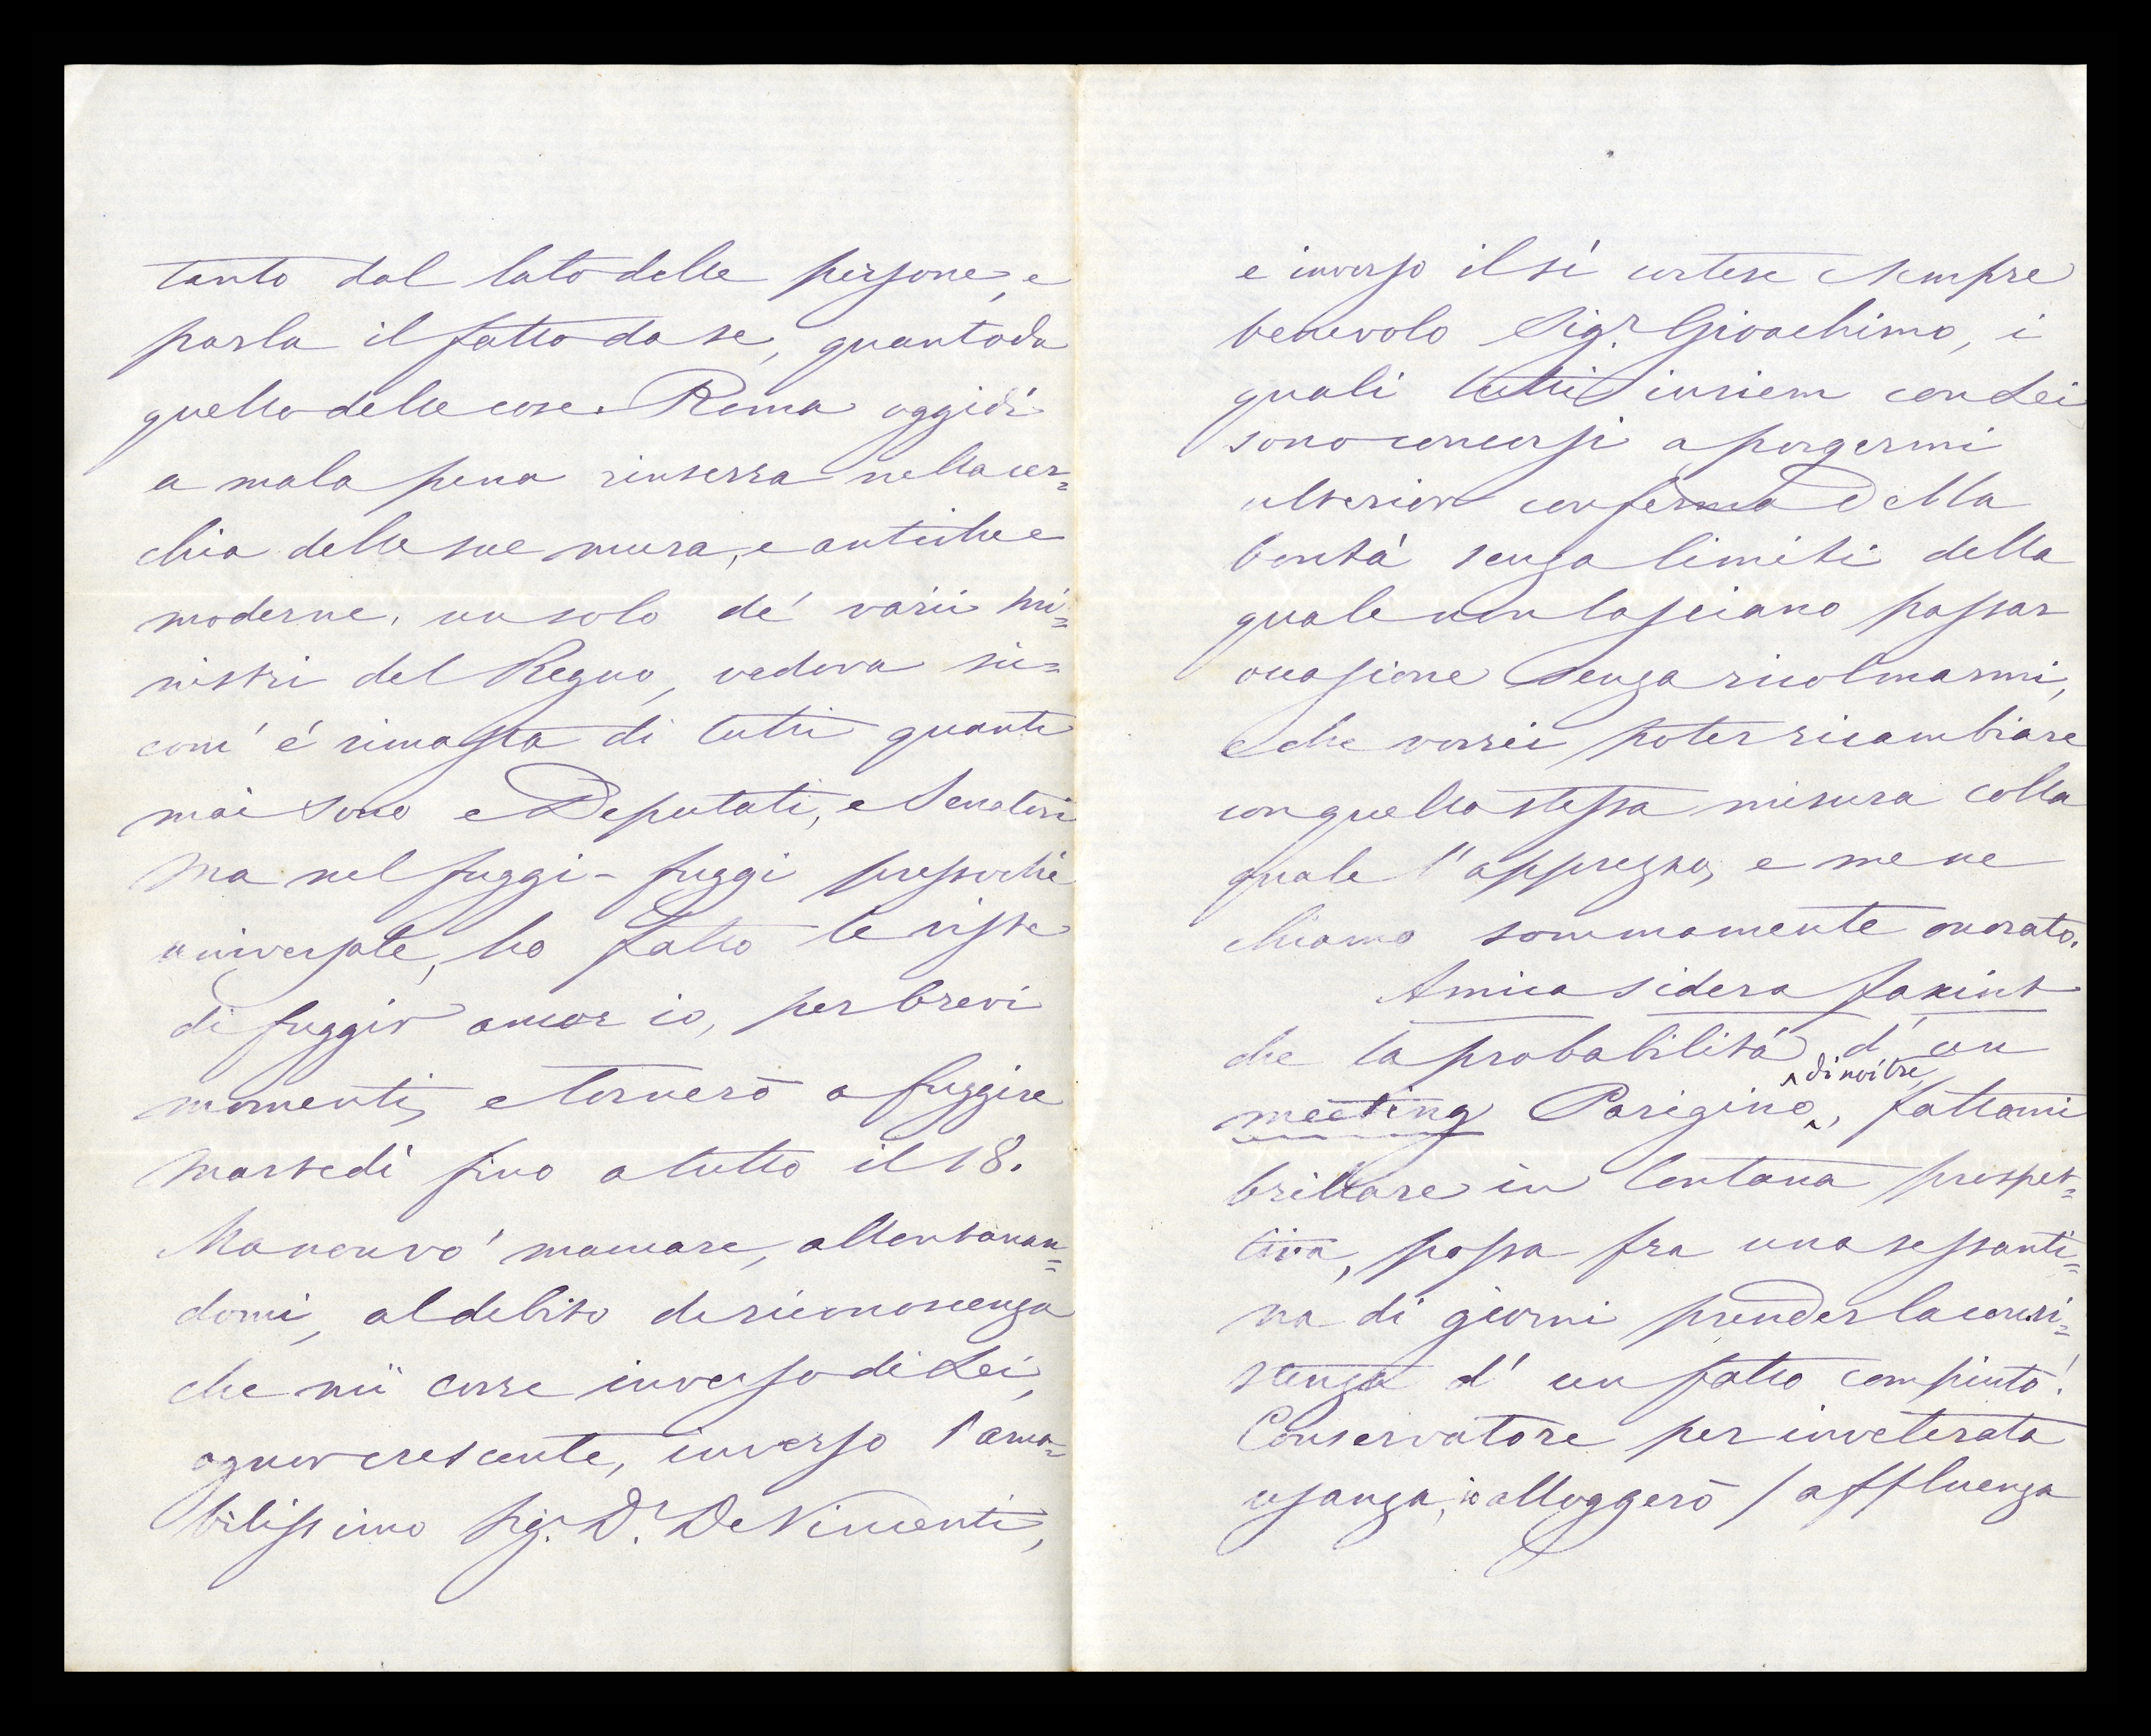 tanto dal lato delle persone, e
parla il fatto da se, quanto da
quello delle cose. Roma oggidì
a mala pena rinserra nella cer=
chia delle sue mura, e antiche e
moderne, un solo de' varii mi=
nistri del Regno, vedova sic=
com' è rimasta di tutti quanti
mai sono e Deputati, e Senatori
Ma nel fuggi-fuggi pressochè
universale, ho fatto le viste
di fuggir ancor io, per brevi
momenti, e tornerò a fuggire
martedì fino a tutto il 18.
Ma non vo' mancare, allontanan=
domi, al debito di riconoscenza
che mi corre inverso di Lei,
ognor crescente, inverso l'ama=
bilissimo Sig. D.r De Vincenti,
e inverso il sì cortese e sempre
benevolo Sig.r Gioachimo, i
quali tutti insiem con Lei
sono concorsi a porgermi
ulterior conferma della
bontà senza limiti della
quale non lasciano passar
occasione senza ricolmarmi,
e che vorrei poter ricambiare
con quella stessa misura colla
quale l'apprezzo, e me ne
chiamo sommamente onorato.
Amica sidera faxint
che la probabilità d'un
meeting Parigino di noi tre, fattami
brillare in lontana prospet=
tiva, possa fra una sessanti=
na di giorni prender la consi=
stenza d'un fatto compiuto!
Conservatore per inveterata
usanza, io alloggerò / affluenza